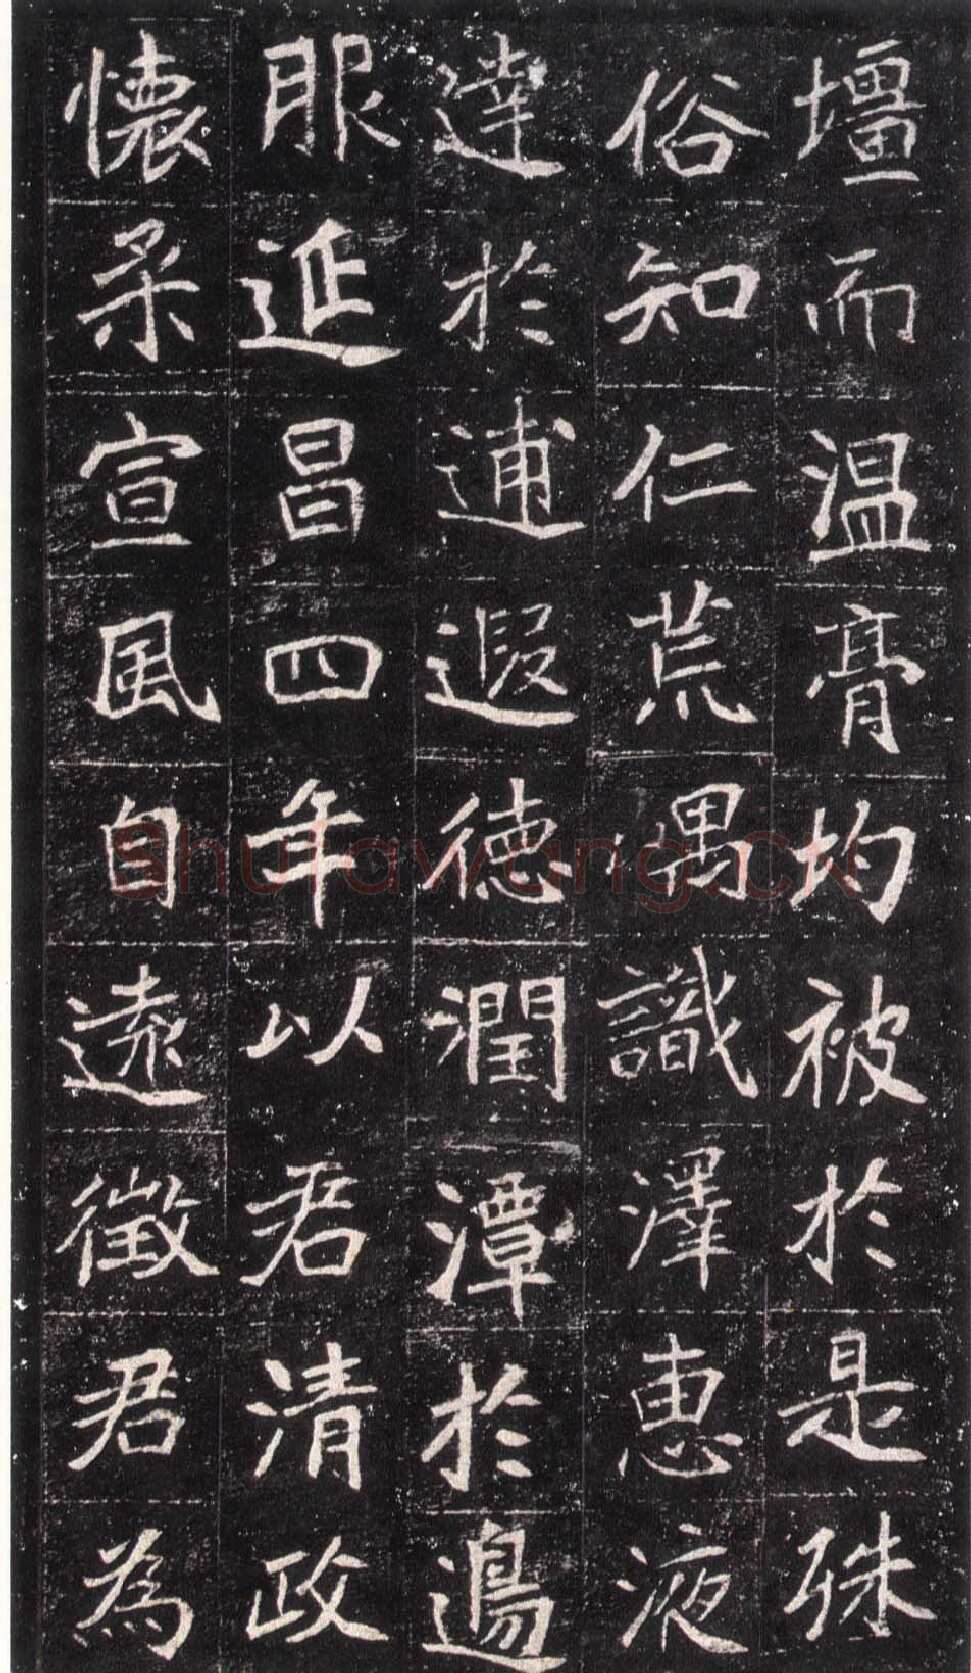 壃而温膏均被於是殊
俗知仁荒嵎識澤惠液
達於逋遐德潤潭於邊
服延昌四年以君清政
懷柔宣風自遠徵君為
Shufawang.cn